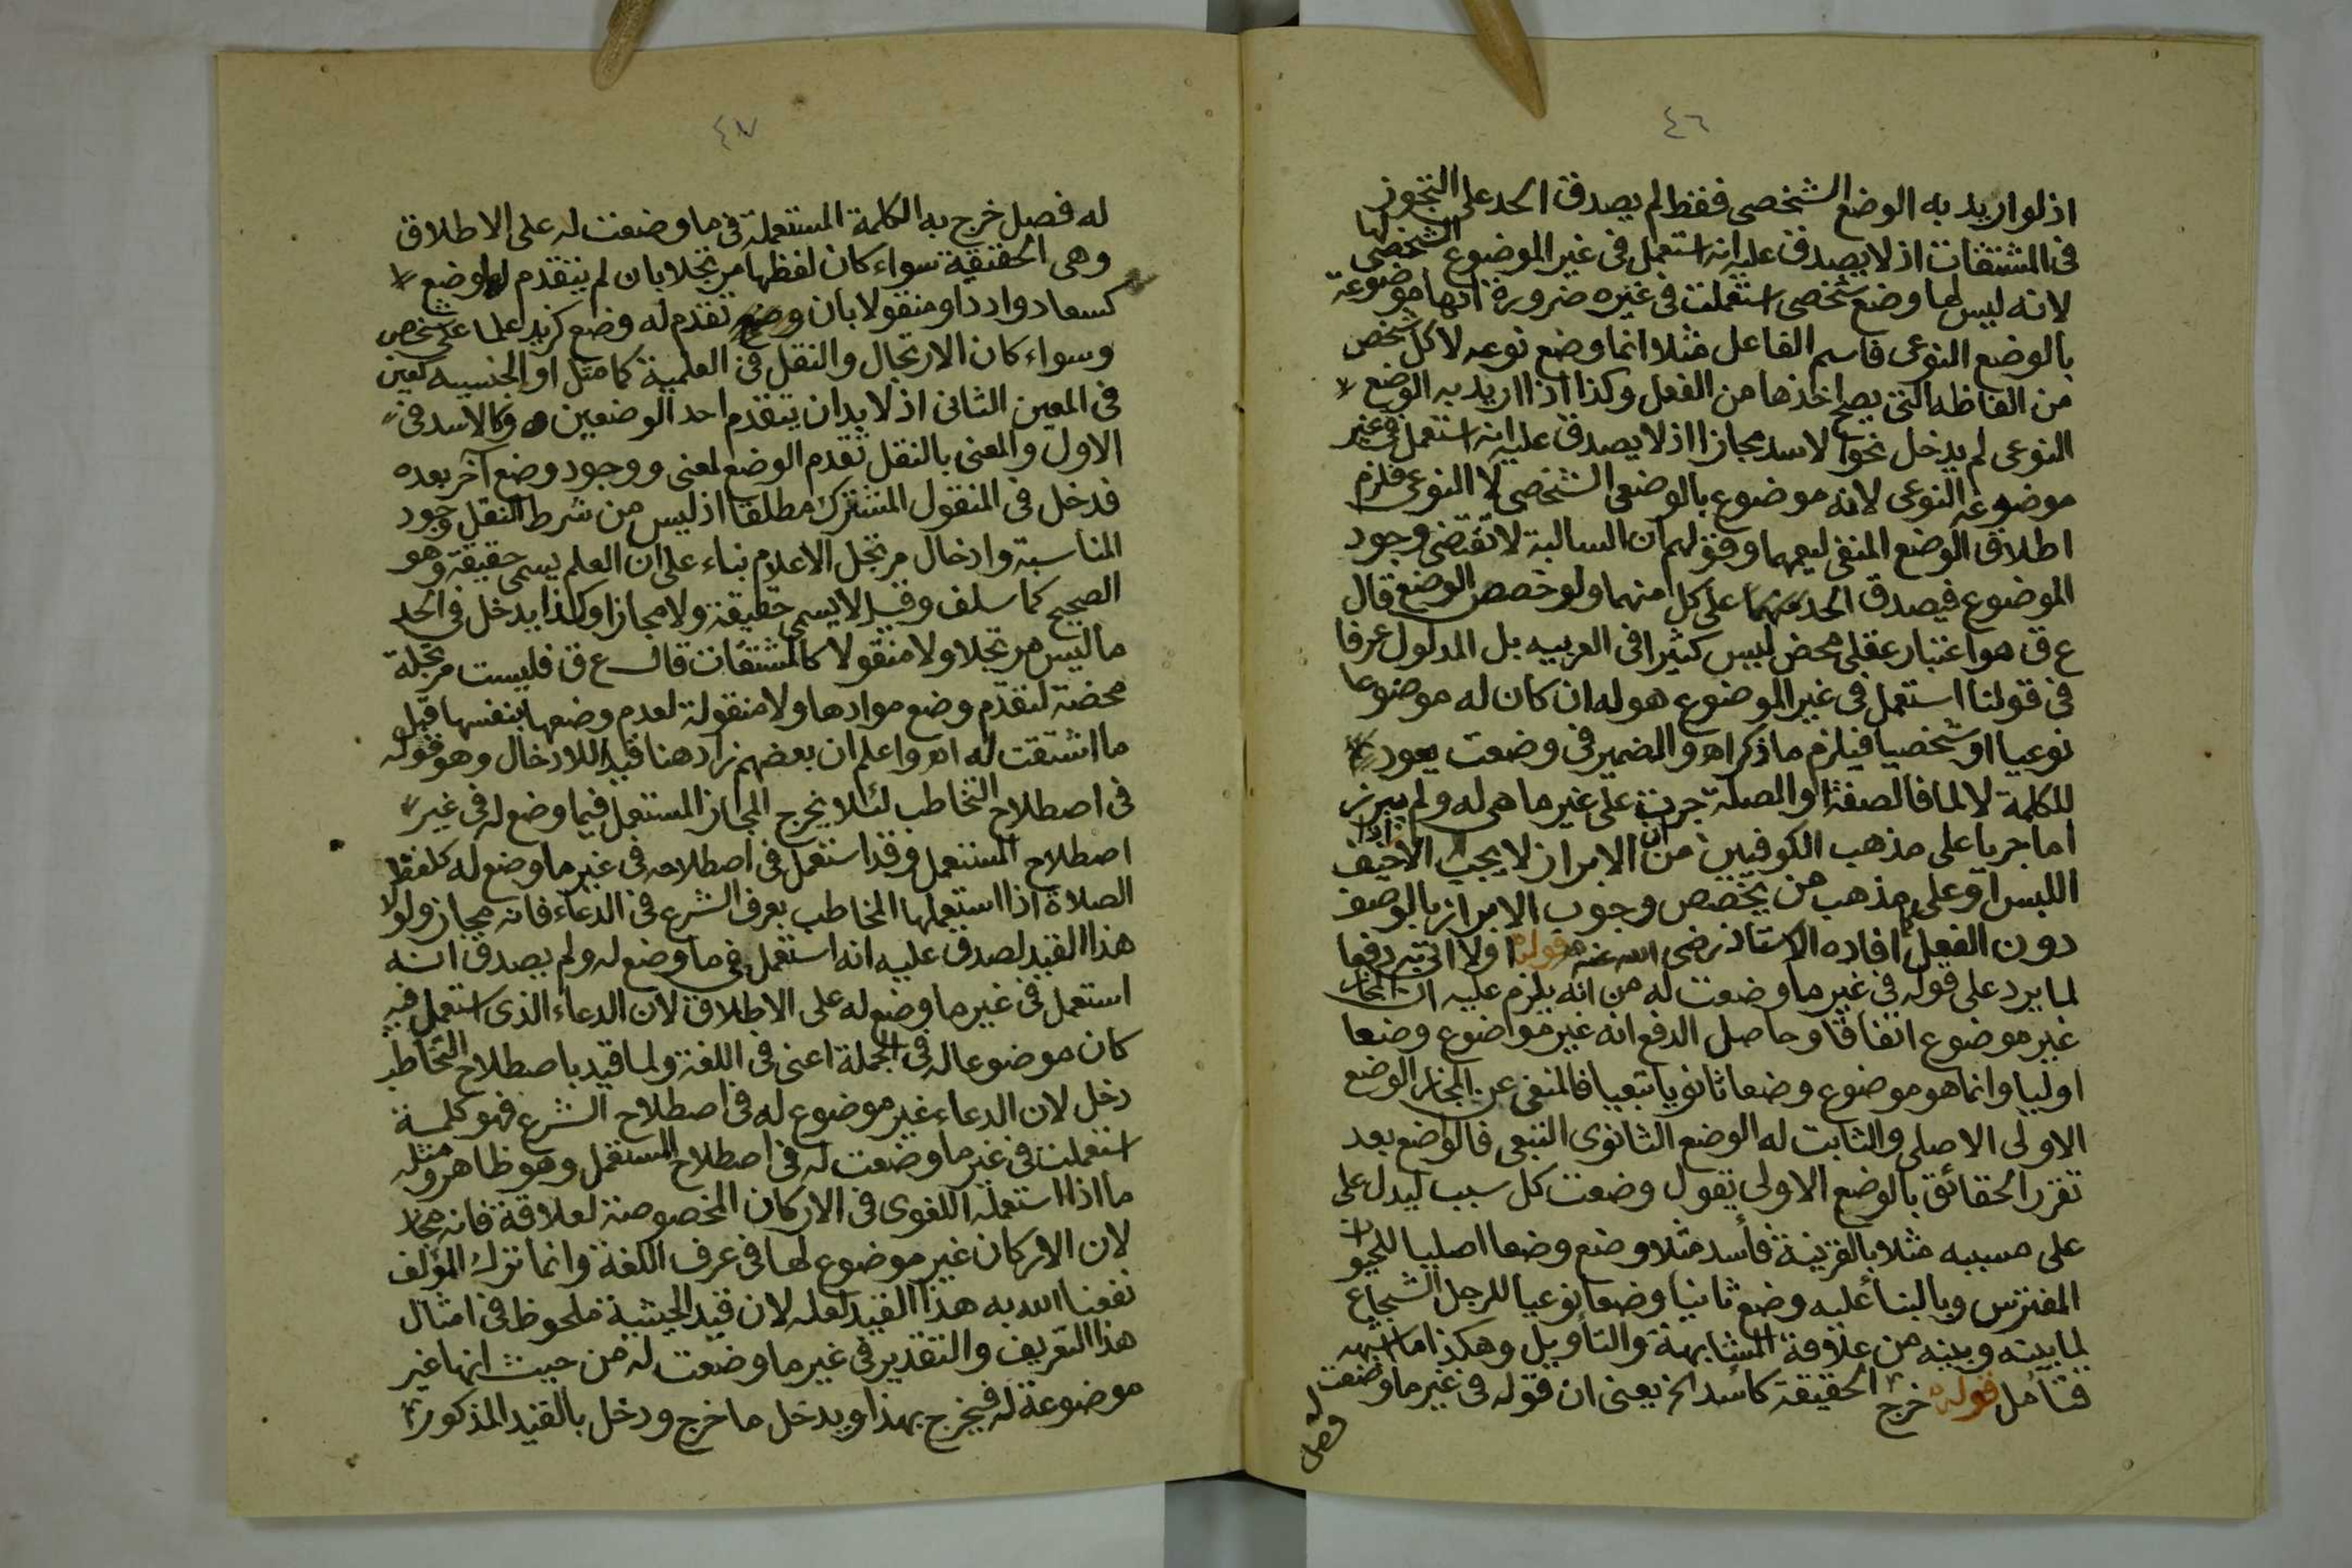 ٤٦
اذ لو اريد به الوضع الشخصى فقط لم يصدق الحد على التجوز
فى المشتقات اذ لا يصدق عليه انه استعمل فى غير الموضوع الشخصى لها
لانه ليس لها وضع شخصى استعملت فى غيره ضرورة انها موضوعة
بالوضع النوعى فاسم الفاعل مثلا انما وضع نوعه لا كل شخص
من الفاظه التى يصح اخذها من الفعل وكذا اذا اريد به الوضع
النوعى لم يدخل نحو الاسد مجازا اذ لا يصدق عليه انه استعمل فى غير
موضوعه النوعى لانه موضوع بالوضع الشخصى لا النوعى فلزم
اطلاق الوضع المنفى ليعمهما وقولهم ان السالبة لا تقتضى وجود
الموضوع فيصدق الحد على كل منهما ولو خصص الوضع قال
ع ق هو اعتبار عقلى محض ليس كثيرا فى العربيه بل المدلول عرفا
فى قولنا استعمل فى غير الموضوع هو له ان كان له موضوعا
نوعيا او شخصيا فيلزم ما ذكر اه والضمير فى وضعت يعود
للكلمة لا لما فالصفة او الصلة جرت على غير ما هى له ولم يبرز
اما جريا على مذهب الكوفيين من ان الابراز لا يجب الا اذا خيف
اللبس او على مذهب من يخصص وجوب الابراز بالوصف
دون الفعل افاده الاستاذ رضى الله عنه قوله اولا اتى به دفعا
لما يرد على قوله فى غير ما وضعت له من انه يلزم عليه ان المجاز
غير موضوع اتفاقا وحاصل الدفع انه غير موضوع وضعا
اوليا وانما هو موضوع وضعا ثانويا تبعيا فالمنفى عن المجاز الوضع
الاولى الاصلى والثابت له الوضع الثانوى التبعى فالواضع بعد
تقرر الحقائق بالوضع الاولى يقول وضعت كل سبب ليدل على
على مسببه مثلا بالقرينة فأسد مثلا وضع وضعا اصليا للحيوان
المفترس وبالبنأ عليه وضع ثانيا وضعا نوعيا للرجل الشجاع
لما بينه وبينه من علاقة المشابهة والتأويل وهكذا ما اشبهه
فتأمل قوله خرج الحقيقة كأسد الخ يعنى ان قوله فى غير ما وضعت له
فصل
٤٧
له فصل خرج به الكلمة المستعملة فى ما وضعت له على الاطلاق
وهى الحقيقة سواء كان لفظها مرتجلا بان لم يتقدم لها وضع
كسعاد وادد او منقولا بان تقدم له وضع كزيد علما على شخص
وسواء كان الارتجال والنقل فى العلمية كما مثل او الجنسيه كعين
فى المعين الثانى اذ لا بد ان يتقدم احد الوضعين وكالاسد فى
الاول والمعنى بالنقل تقدم الوضع لمعنى ووجود وضع آخر بعده
فدخل فى المنقول المشترك مطلقا اذ ليس من شرط النقل وجود
المناسبة وادخال مرتجل الاعلام بناء على ان العلم يسمى حقيقة وهو
الصحيح كما سلف وقيل لا يسمى حقيقة ولا مجازا وكذا يدخل فى الحد
ما ليس مرتجلا ولا منقولا كالمشتقات قال ع ق فليست مرتجلة
محضة لتقدم وضع موادها ولا منقولة لعدم وضعها بنفسها قبل
ما اشتقت له اه واعلم ان بعضهم زاد هنا قيدا للادخال وهو قوله
فى اصطلاح التخاطب لئلا يخرج المجاز المستعمل فيما وضع له فى غير
اصطلاح المستعمل وقد استعمل فى اصطلاحه فى غير ما وضع له كلفظ
الصلاة اذا استعملها المخاطب بعرف الشرع فى الدعاء فانه مجاز ولولا
هذا القيد لصدق عليه انه استعمل فى ما وضع له ولم يصدق انه
استعمل فى غير ما وضع له على الاطلاق لان الدعاء الذى استعمل فيه
كان موضوعا له فى الجملة اعنى فى اللغة ولما قيد باصطلاح التخاطب
دخل لان الدعاء غير موضوع له فى اصطلاح الشرع فهو كلمة
استعملت فى غير ما وضعت له فى اصطلاح المستعمل وهو ظاهر ومثله
ما اذا استعمله اللغوى فى الاركان المخصوصة لعلاقة فانه مجاز
لان الاركان غير موضوع لها فى عرف اللغة وانما ترك المؤلف
نفعنا الله به هذا القيد لعله لان قيد الحيثية ملحوظ فى امثال
هذا التعريف والتقدير فى غير ما وضعت له من حيث انها غير
موضوعة له فيخرج بهذا ويدخل ما خرج ودخل بالقيد المذكور